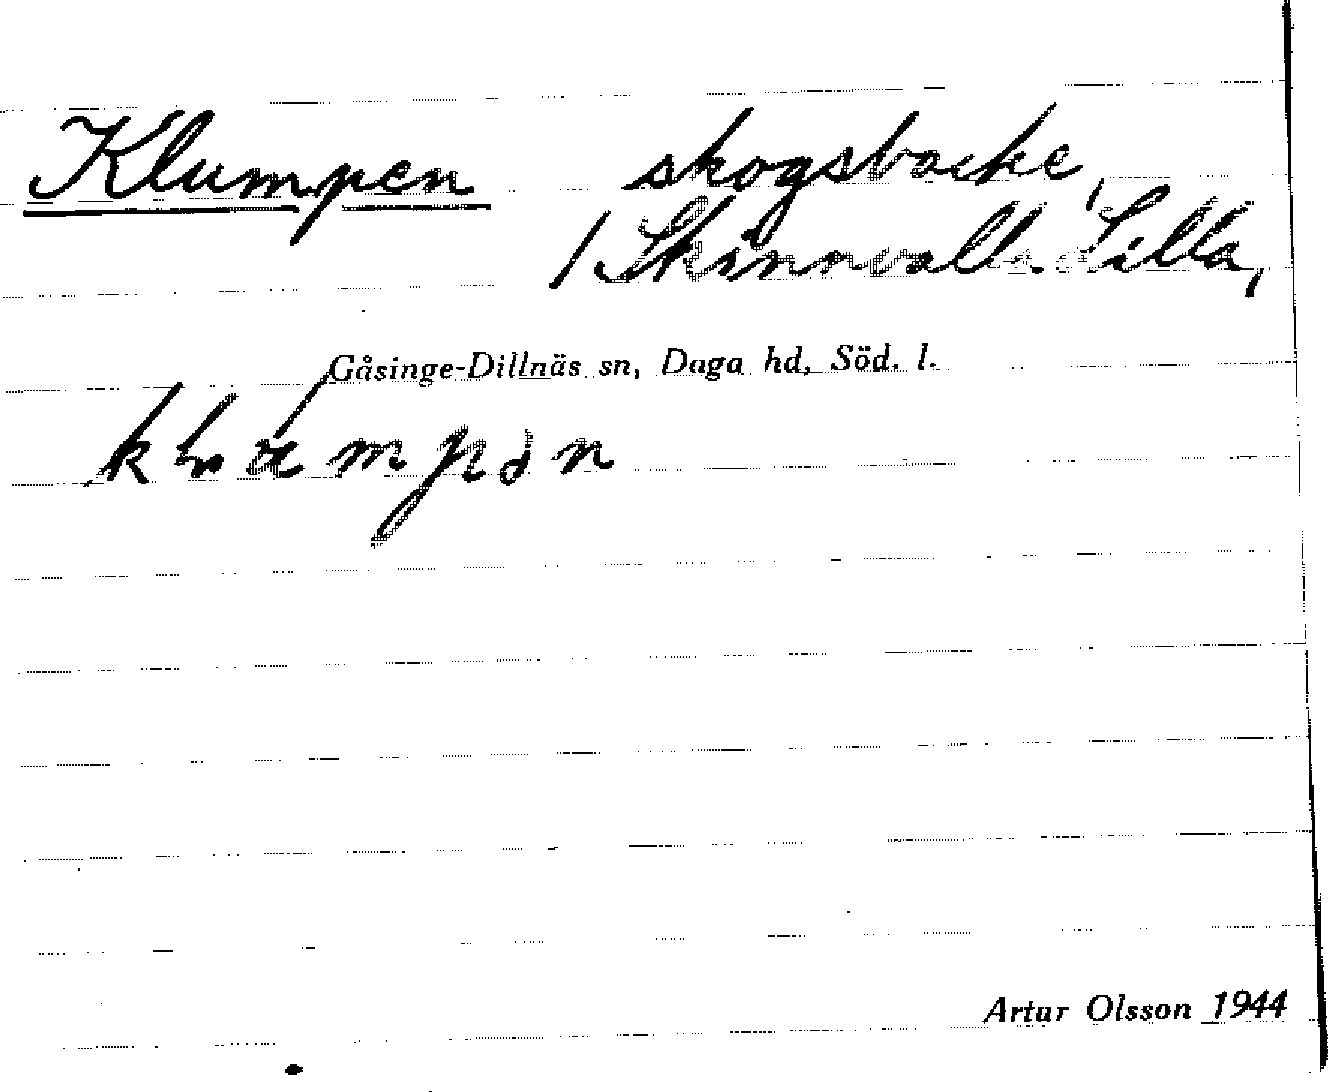 Klumpen skogsbacke,
/ Skinnvalla Lilla,
Gåsinge-Dillnäs sn, Daga hd, Söd. l.
Artur Olsson 1944